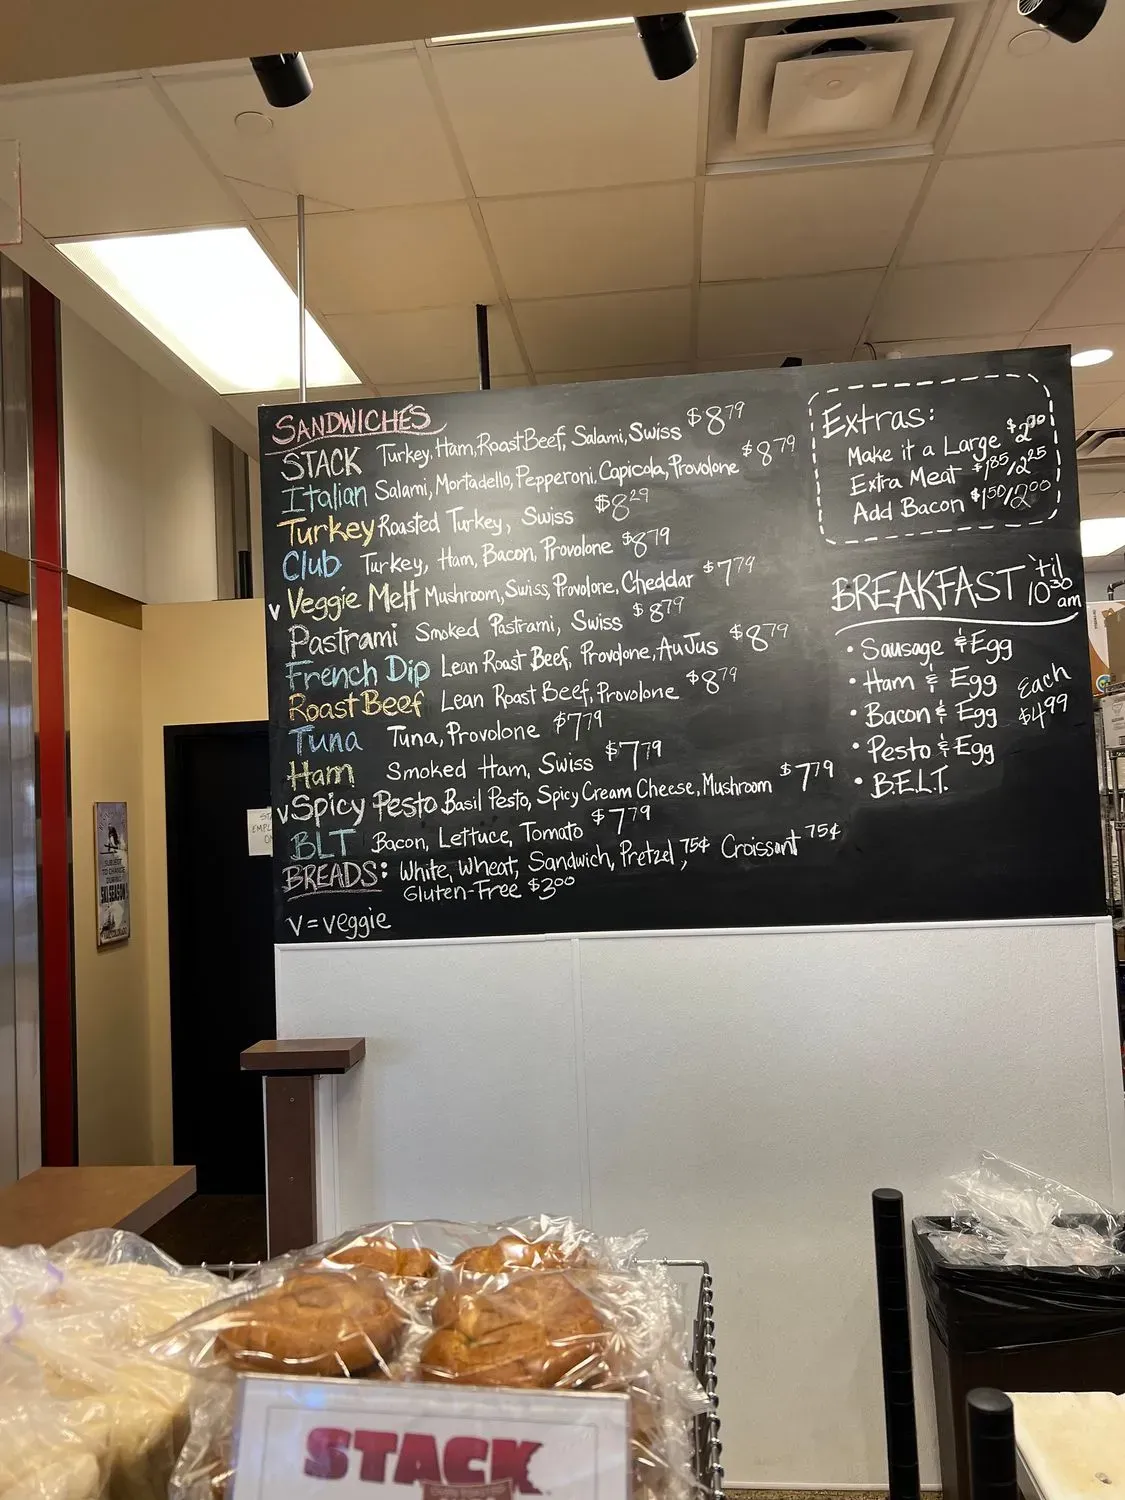 SANDWICHES
STACK Turkey, Ham, Roast Beef, Salami, Swiss $8 79
Italian Salami, Mortadello, Pepperoni, Capicola, Provolone $8 79
Turkey Roasted Turkey, Swiss $8 29
Club Turkey, Ham, Bacon, Provolone $8 79
v Veggie Melt Mushroom, Swiss, Provolone, Cheddar $7 79
Pastrami Smoked Pastrami, Swiss $8 79
French Dip Lean Roast Beef, Provolone, Au Jus $8 79
Roast Beef Lean Roast Beef, Provolone $8 79
Tuna Tuna, Provolone $7 79
Ham Smoked Ham, Swiss $7 79
v Spicy Pesto Basil Pesto, Spicy Cream Cheese, Mushroom $7 79
BLT Bacon, Lettuce, Tomato $7 79
BREADS: White, Wheat, Sandwich, Pretzel, 75¢ Croissant 75¢
Gluten-Free $3 00
V = veggie
Extras:
Make it a Large $2 00
Extra Meat $1 85/2 25
Add Bacon $1 50/2 00
BREAKFAST 'til 10 30 am
• Sausage & Egg
• Ham & Egg
• Bacon & Egg
• Pesto & Egg
• B.E.L.T.
Each
$4 99
SUBJECT
TO CHANGE
DURING
SKI SEASON
STACK